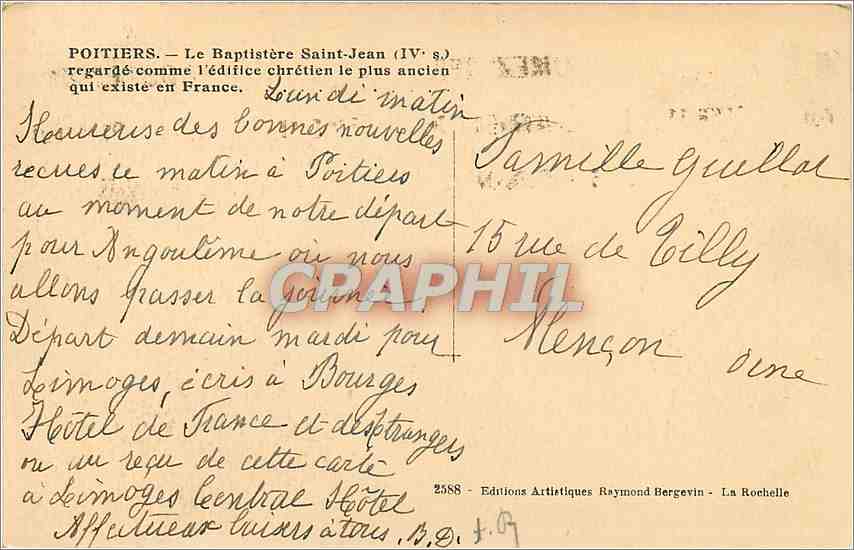 POITIERS. — Le Baptistère Saint-Jean (IVe s.)
regardé comme l'édifice chrétien le plus ancien
qui existe en France.
Lundi matin
Heureuse des bonnes nouvelles
recues ce matin à Poitiers
au moment de notre départ
pour Angoulême où nous
allons passer la journée
Départ demain mardi pour
Limoges, écris à Bourges
Hôtel de France et des Etrangers
ou au reçu de cette carte
à Limoges Central Hôtel
Affectueux baisers à tous. B.D.
Famille Guillot
15 rue de Tilly
Alençon Orne
CPAPHIL
2588 - Editions Artistiques Raymond Bergevin - La Rochelle